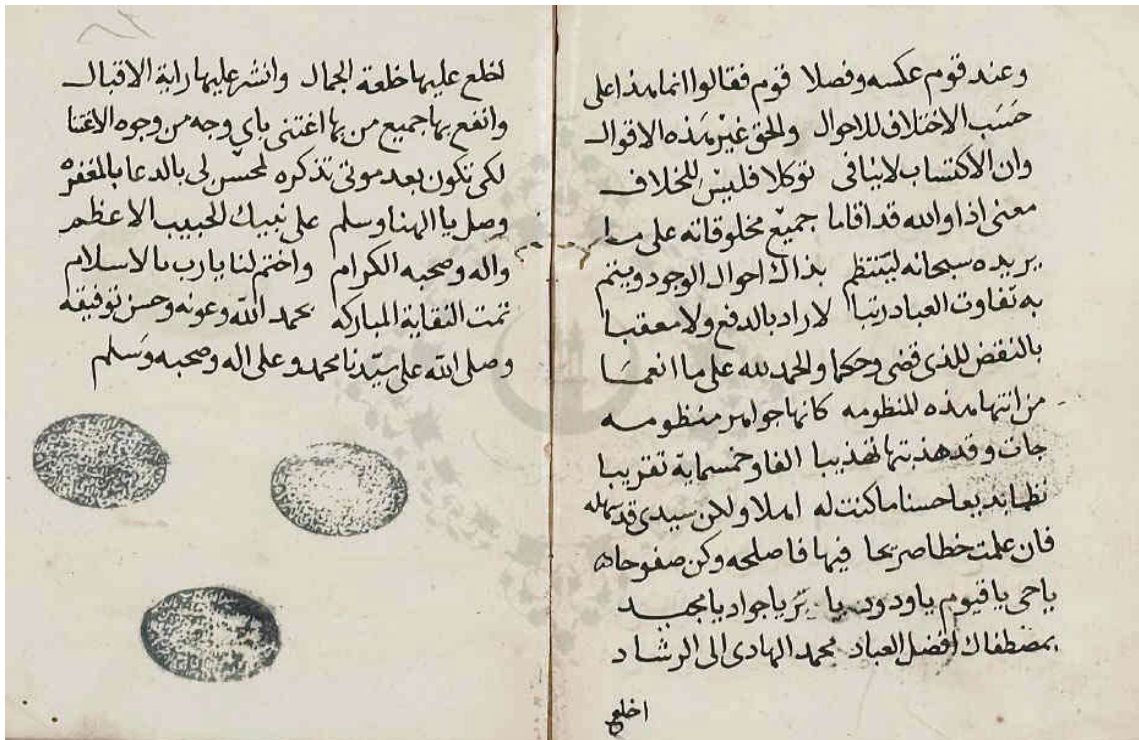 وعند قوم عكسه وفصلا قوم فقالوا انما هذا على
حَسَب الاختلاف للاحوال والحق غيْر هَذه الاقوال
وان الاكتساب لاينافى توكلا فليسْ للخلاف
معنى اذا والله قد اقاما جميْع مخلوقاته على ما
يريده سبحانه لينتظم بذاك احوال الوجود ويتم
به تفاوت العباد رتبا لا راد بالدفع ولا معقبا
بالنقض للذى قضى وحكما والحمد لله على ما انعمَا
من انتها هذه المنظومه كانها جواهر منظومه
جات وقد هذبتها تهذيبا الفا وخمسماية تقريبا
نظما بديعا حسنا ما كنت له املا ولكن سيدى قد سهله
فان علمت خطا صريحا فيها فاصلحه وكن صفوحا
ياحى ياقيوم ياودود يا برّ ياجواد يامجيد
بمصطفاك افضل العباد محمد الهادى الى الرشاد
اخلع
اخلع عليها خلعة الجمال وانشر عليها راية الاقبال
وانفع بها جميع من بها اغتنى باي وجه من وجوه الاغتنا
لكى تكون بعد موتى تذكره لمحسن لى بالدعا بالمغفره
وصل يا الهنا وسلم على نبيك الحبيب الاعظم
واله وصحبه الكرام واختم لنا يارب بالاسلام
تمت النقاية المباركه بحمد الله وعونه وحسن توفيقه
وصلى الله على سيّدنا محمد وعلى اله وصحبه وَسلم